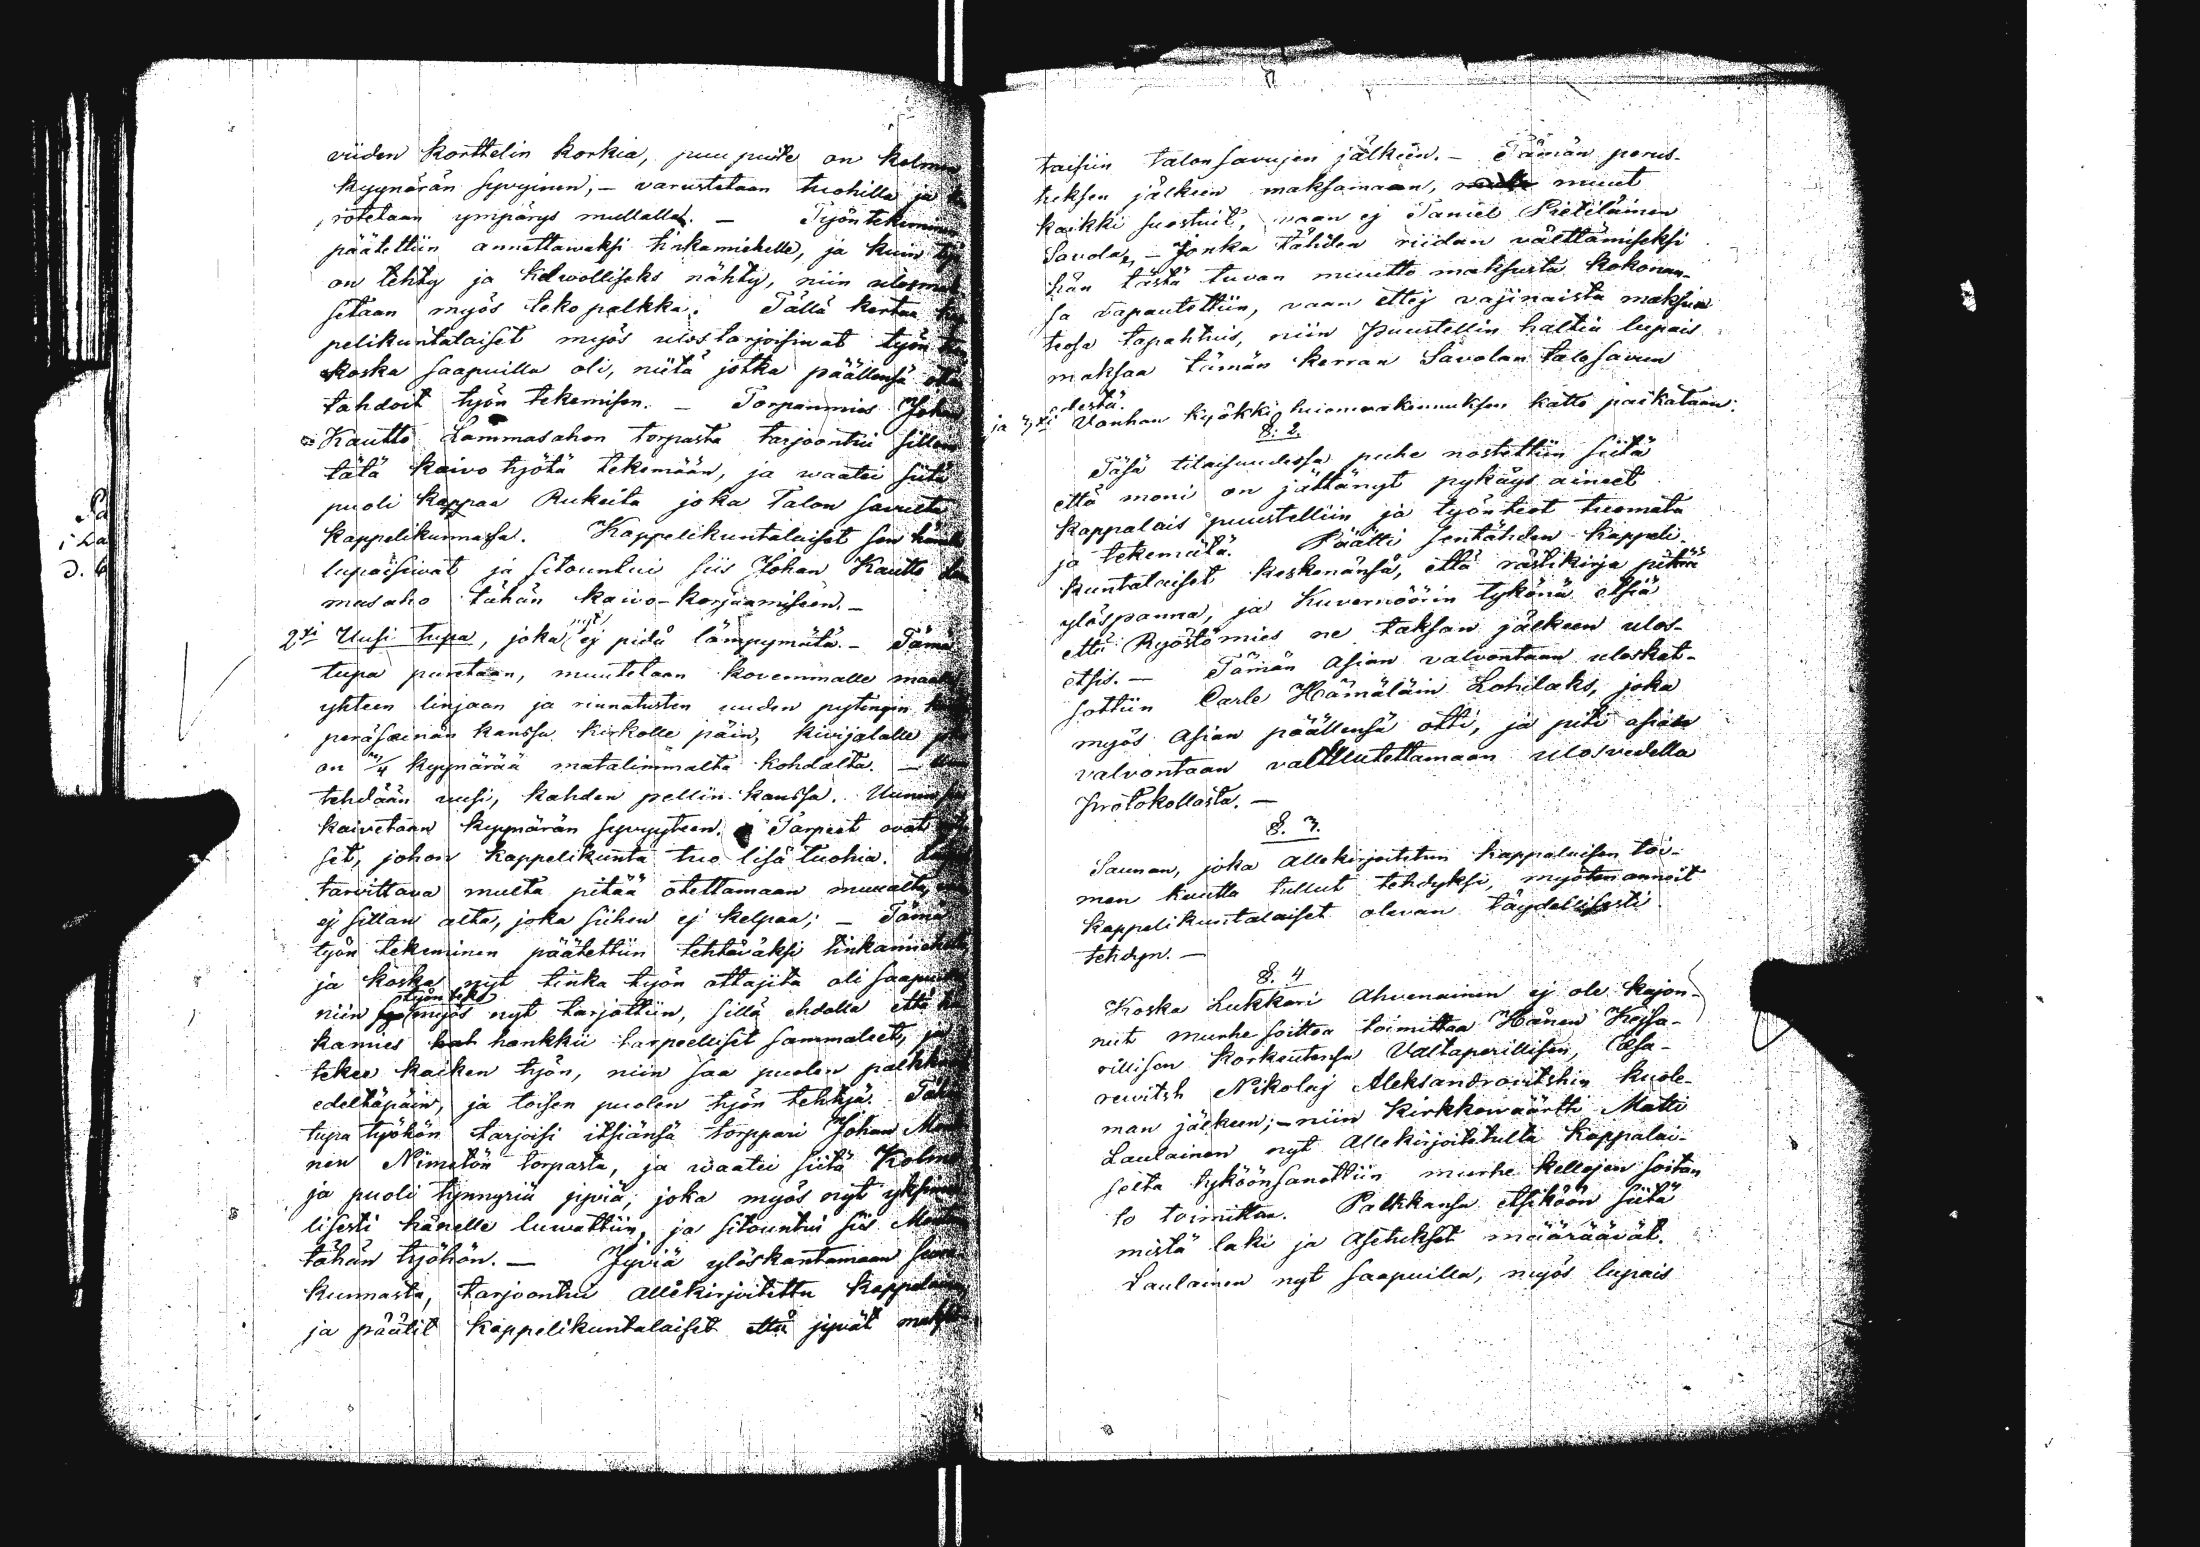 viiden korttelin korkia, puu puite on kolmen
kyynärän syvyinen, – varustetaan tuohilla ja
rötetaan ympärys mullalla. – Työn tekeminen
päätettiin annettawaksi tinkamiehelle, ja kuin työ
on tehty ja kelwolliseks nähty, niin ulosmak
setaan myös teko palkka. Tällä kertaa kap
pelikuntalaiset myös ulos tarjoisiwat työn
koska saapuilla oli, niitä jotka päällensä otta
tahdoit työn tekemisen. – Torpanmies Johan
Kautto Lammasahon torpasta tarjoontui sillon
tätä kaivo työtä tekemään, ja waatei siitä
puoli kappaa Rukeita joka Talon savulta
kappelikunnassa. Kappelikuntalaiset sen hänelle
lupaisiwat ja sitountui siis Johan Kautto Lam
masaho tähän kaivo-korjaamiseen. –
2ksi Uusi tupa, joka nyt ej pidä lämpymätä. – Tämä
tupa puretaan, muutetaan kovemmalle maalle
yhteen linjaan ja rinnatusten uuden pytingin
peräseinän kanssa kirkolle päin, kivijalalle
on 3/4 kyynärää matalimmalta kohdalta. –
tehdään uusi, kahden pellin kanssa. Uunin
kaivetaan kyynärän syvyyteen. Tarpeet ovat
set, johon kappelikunta tuo lisä tuohia.
tarvittava multa pitää otettamaan muualta,
ej sillan alta, joka siihen ej kelpaa; – Tämä
työn tekeminen päätettiin tehtäväksi tinkamiehellä
ja koska nyt tinka työn ottajita oli saapuilla
niin työn teko myös nyt tarjottiin, sillä ehdolla että
kamies hankkii tarpeelliset sammaleet, ja
tekee kaiken työn, niin saa puolen palkkansa
edeltäpäin, ja toisen puolen työn tehtyä. Tähän
tupa työhön tarjoisi itsiänsä torppari Johan
nen Nimetön torpasta, ja waatei siitä Kolme
ja puoli tynnyriä jyviä, joka myös nyt yksimie
lisesti hänelle luwattiin, ja sitountui siis
tähän työhön. – Jyviä ylöskantamaan seura
kunnasta, tarjoontui allekirjoitettu kappalainen
ja päätit kappelikuntalaiset että jyvät maks
taisiin talon savujen jälkeen. – Tämän perus-
tuksen jälkeen maksamaan, muut
kaikki suostuit, vaan ej Taniel Pietiläinen
Savola, – Jonka tähden riidan välttämiseksi
hän tästä tuvan muutto maksusta kokonan-
sa vapautettiin, vaan ettej vajinaista maksua
tuosa tapahtuis, niin puustellin haltia lupais
maksaa tämän kerran Savolan talo savun
desta.
ja 3ksi Vanhan kyökki huonerakennuksen katto paikataan.
§. 2.
Täsä tilaisuudessa puhe nostettiin siitä
että moni on jättänyt pykäys aineet
kappalais puustelliin ja työnteot tuomata
ja tekemätä. Päätti sentähden kappeli-
kuntalaiset keskenänsä, että rästikirja pitää
ylöspanna, ja Kuvernöörin tykönä etsiä
että Ryöstömies ne taksan jälkeen ulos-
etsis. – Tämän asian valvontaan uloskat-
sottiin Carle Hämäläin Lohilaks, joka
myös asian päällensä otti, ja piti asian
valvontaan valtllutettamaan ulosvedella
protokollasta. –
§. 3.
Saunan, joka allekirjoitetun kappalaisen toi-
men kautta tullut tehdyksi, myöten annoit
kappelikuntalaiset olevan täydellisesti
tehdyn. –
§. 4
Koska Lukkari Ahvenainen ej ole kajon-
nut murhe soittoa toimittaa Hänen Keisa-
rillisen Korkeutensa Valtaperillisen, Cesa-
rewitsh Nikolaj Aleksandrowitshin kuole-
man jälkeen; – niin Kirkkowäärtti Matti
Laulainen nyt allekirjoitetulta kappalai-
selta tyköönsanottiin murhe kellojen soitan
to toimittaa. Palkkansa etsiköön siitä
mistä laki ja Asetukset määräävät.
Laulainen nyt saapuilla, myös lupais